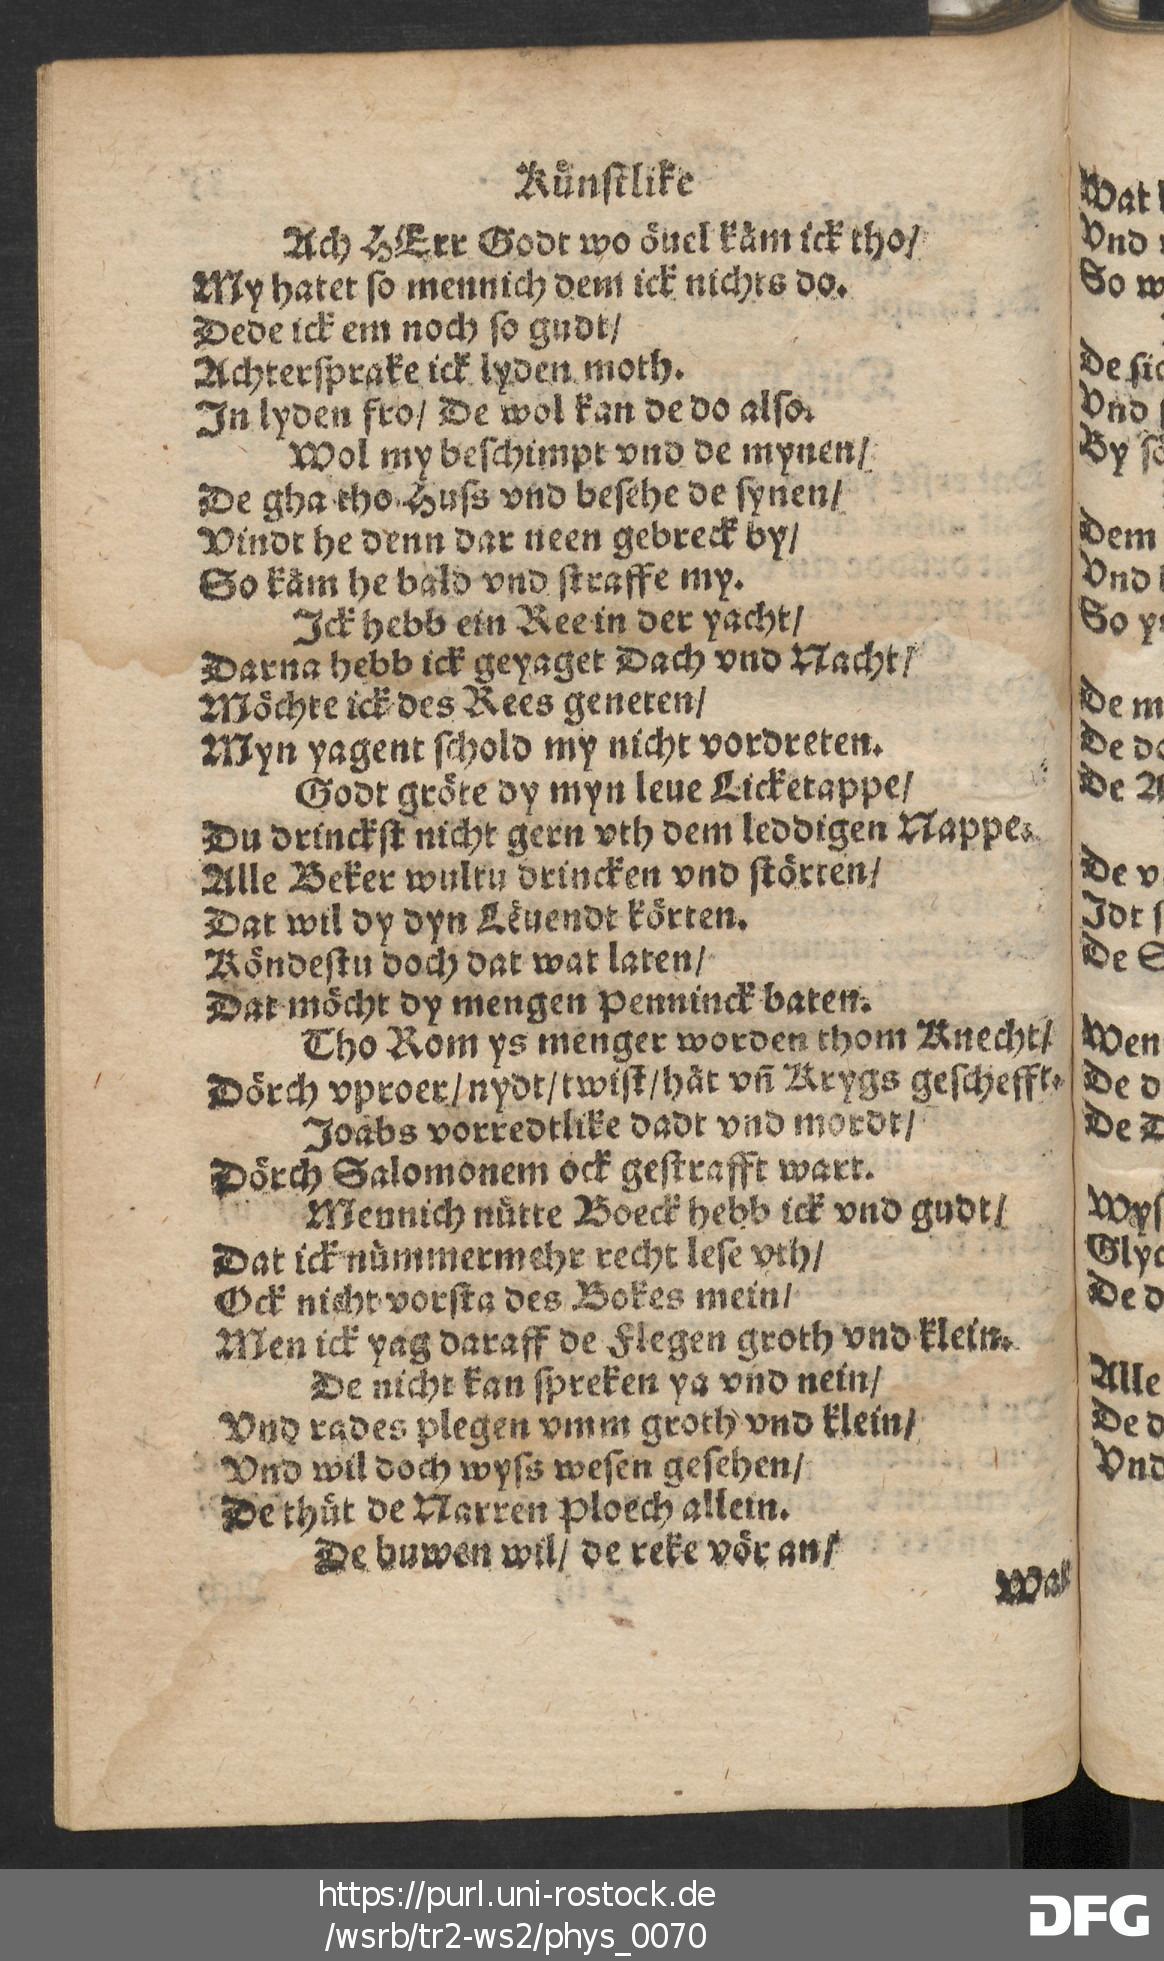 Kůnstlike
Ach HErr Godt wo öuel käm ick tho/
My hatet so mennich dem ick nichts do.
Dede ick em noch so gudt/
Achtersprake ick lyden moth.
In lyden fro/ De wol kan de do also.
Wol my beschimpt vnd de mynen/
De gha tho Huss vnd besehe de synen/
Vindt he denn dar neen gebreck by/
So käm he bald vnd straffe my.
Ick hebb ein Ree in der yacht/
Darna hebb ick geyaget Dach vnd Nacht/
Möchte ick des Rees geneten/
Myn yagent schold my nicht vordreten.
Godt gröte dy myn leue Licketappe/
Du drinckst nicht gern vth dem leddigen Nappe.
Alle Beker wultu drincken vnd störten/
Dat wil dy dyn Lëuendt körten.
Köndestu doch dat wat laten/
Dat möcht dy mengen penninck baten.
Tho Rom ys menger worden thom Knecht/
Dörch vproer/nydt/twist/hät vñ Krygs geschefft.
Joabs vorredtlike dadt vnd mordt/
Dörch Salomonem ock gestrafft wart.
Mennich nütte Boeck hebb ick vnd gudt/
Dat ick nümmermehr recht lese vth/
Ock nicht vorsta des Bokes mein/
Men ick yag daraff de Flegen groth vnd klein.
De nicht kan spreken ya vnd nein/
Vnd rades plegen vmm groth vnd klein/
Vnd wil doch wyss wesen gesehen/
De thüt de Narren ploech allein.
De buwen wil/ de reke vör an/
Wat
Vnd
So w
De
Vnd
By
Dem
Vnd
So
De m
De
De
De
Idt
De
Wen
De d
De
Wys
Glyc
De d
Alle
De d
Vnd
https://purl.uni-rostock.de
/wsrb/tr2-ws2/phys_0070
DFG